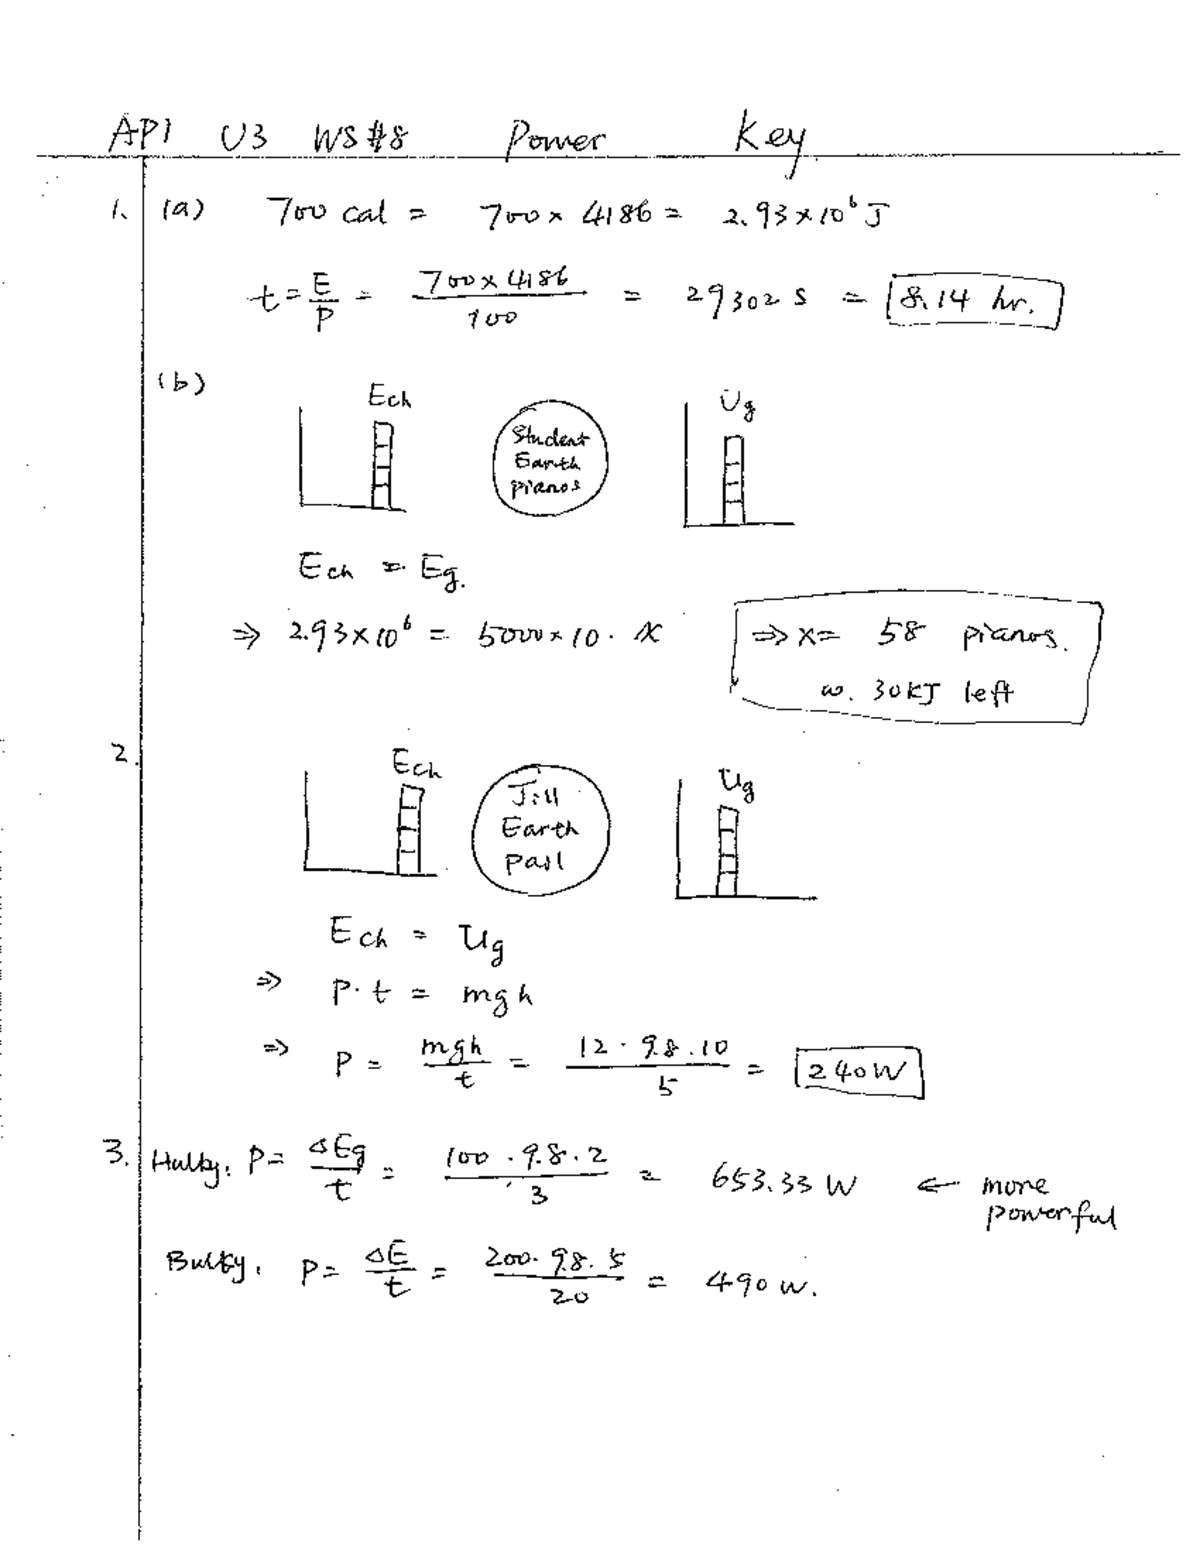 AP1 U3 WS #8 Power Key
1. (a) 700 cal = 700 × 4186 = 2.93 × 10⁶ J
t = E/P = 700 × 4186 / 100 = 29302 s = 8.14 hr.
(b)
Ech Student Earth pianos Ug
Ech = Eg.
⇒ 2.93 × 10⁶ = 5000 × 10 · x ⇒ x = 58 pianos.
w. 30 KJ left
2.
Ech Jill Earth pail Ug
Ech = Ug
⇒ P · t = mgh
⇒ P = mgh / t = 12 · 9.8 . 10 / 5 = 240 W
3. Hulky: P = ΔEg / t = 100 . 9.8 . 2 / 3 = 653.33 W ← more powerful
Bulky. P = ΔE / t = 200 . 9.8 . 5 / 20 = 490 W.